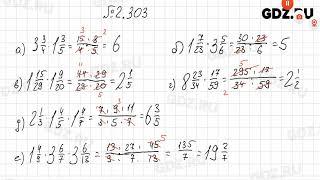 GDZ.RU
№2.303
а) 3 3/4 · 1 3/5 = 15 · 8 / 4 · 5 = 6
б) 1 7/23 · 3 5/6 = 30 · 23 / 23 · 6 = 5
в) 1 15/29 · 1 9/20 = 44 · 29 / 29 · 20 = 2 1/5
г) 8 23/34 · 17/59 = 295 · 17 / 34 · 59 = 2 1/2
д) 2 1/3 · 1 4/5 · 1 4/7 = 7 · 9 · 11 / 3 · 5 · 7 = 6 3/5
е) 1 4/9 · 3 6/7 · 3 6/13 = 13 · 27 · 45 / 9 · 7 · 13 = 135/7 = 19 2/7
GDZ.RU